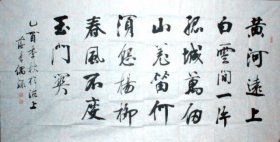 黄河遠上
白雲間一片
孤城萬仞
山羌笛何
須怨楊柳
春風不度
玉門關
乙酉季秋於滬上